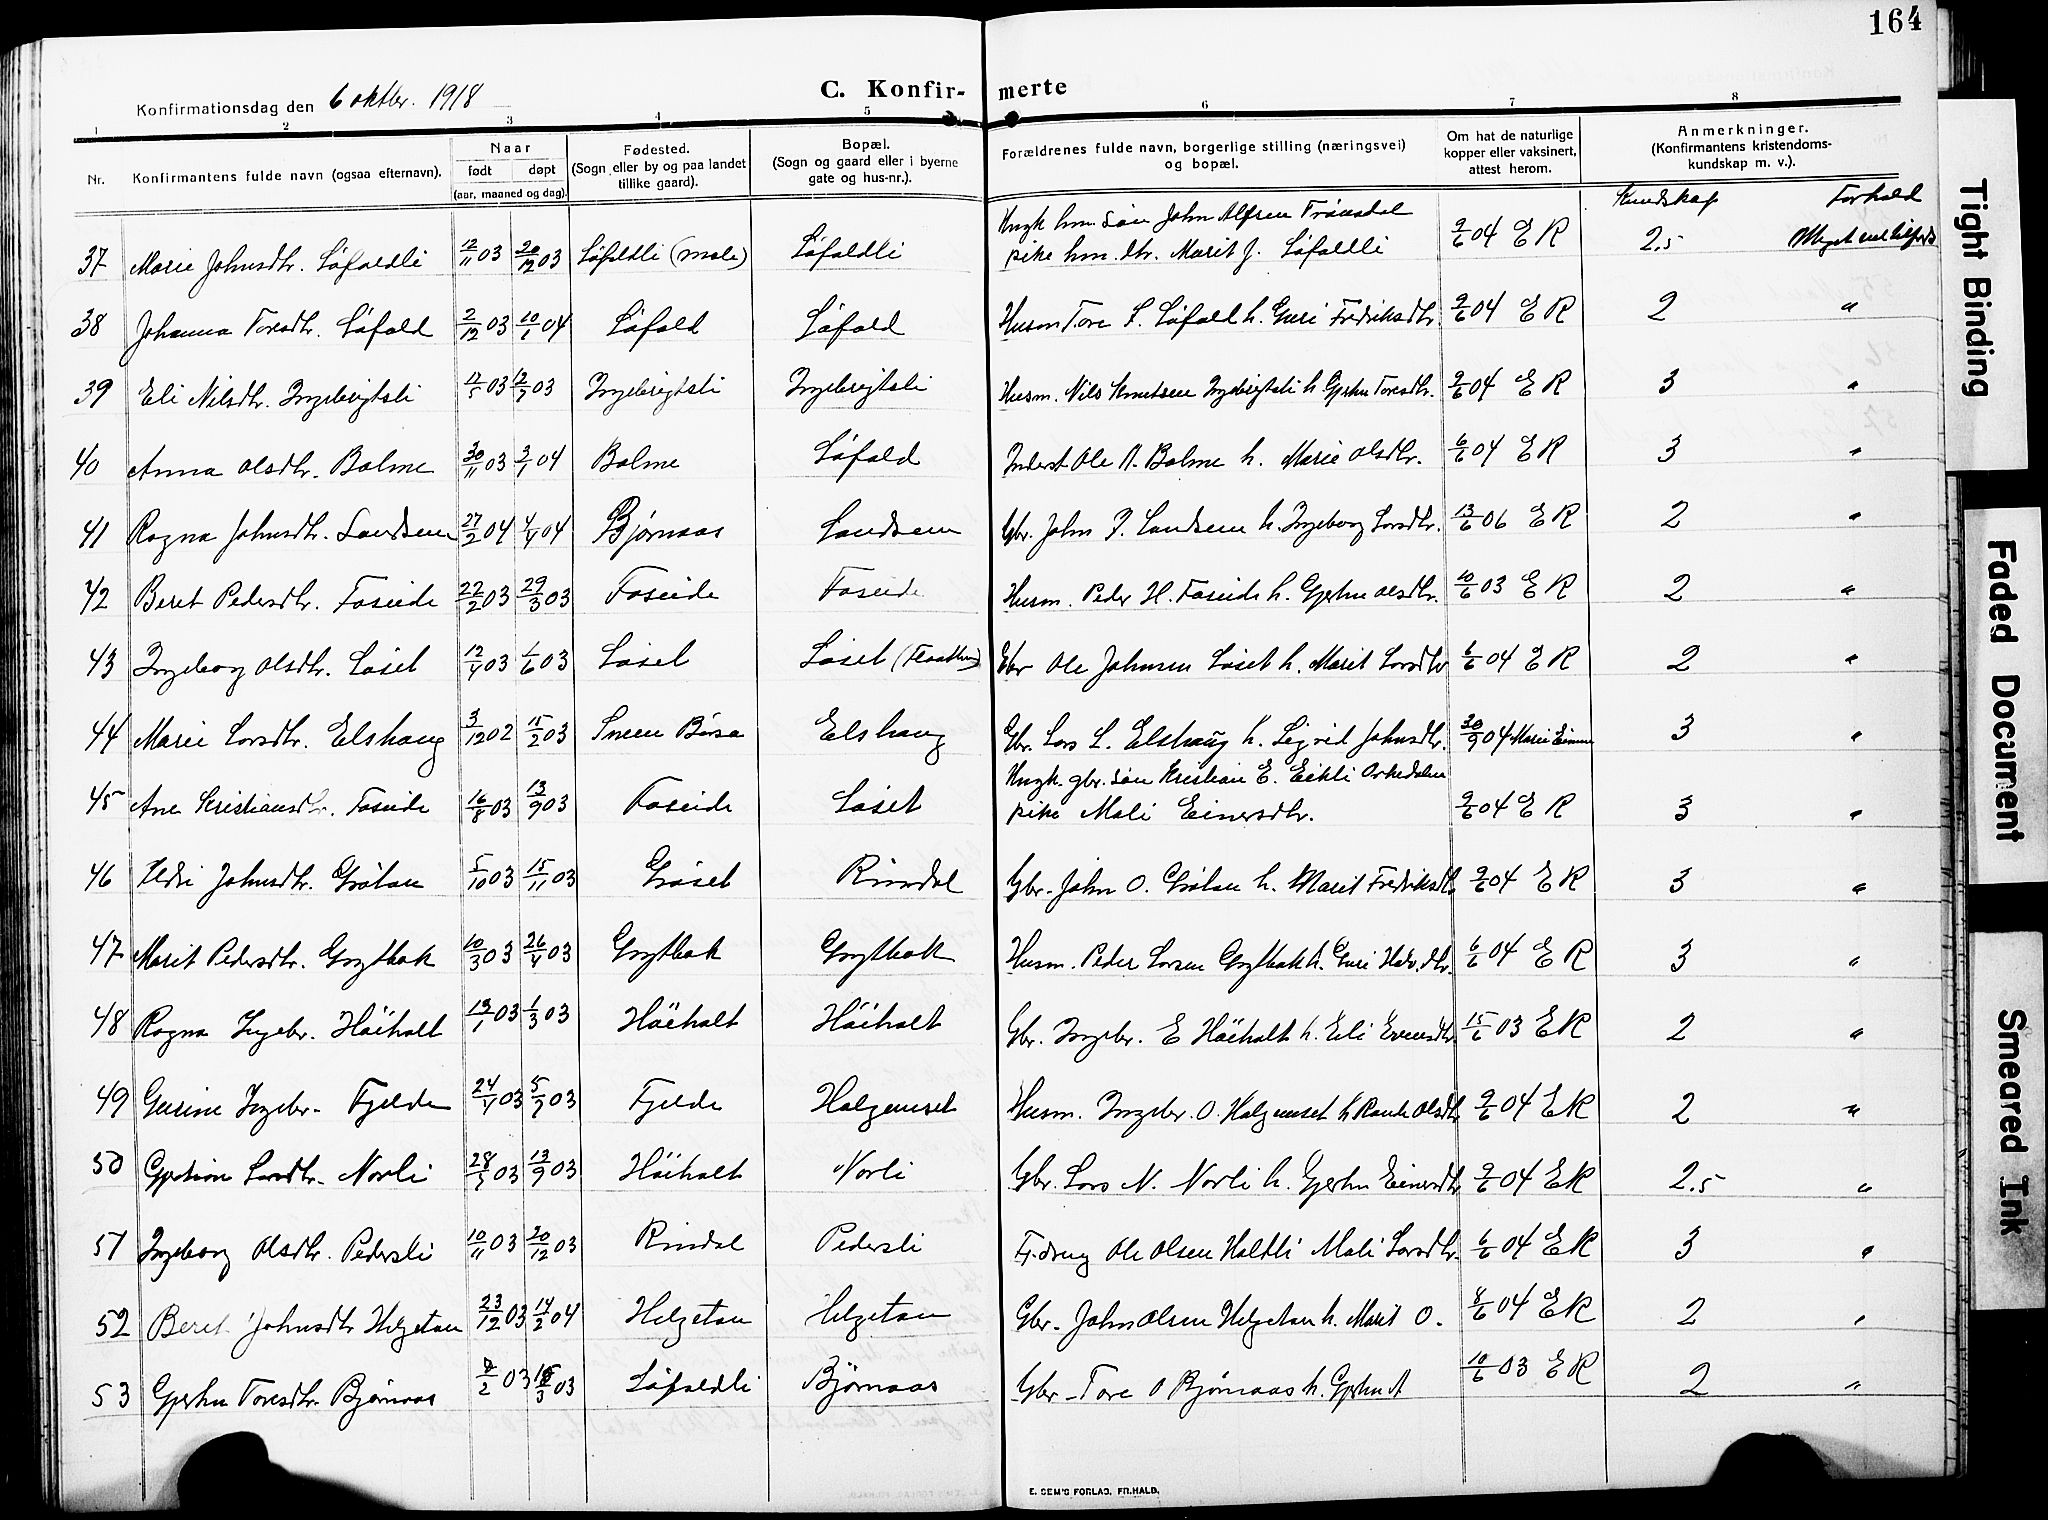 164
Konfirmationsdag den 6 oktbr. 1918
C. Konfirmerte
1 2 3 4 5 6 7 8
Nr.
Konfirmantens fulde navn (ogsaa efternavn).
Naar
født døpt
(aar, maaned og dag).
Fødested.
(Sogn eller by og paa landet
tillike gaard).
Bopæl.
(Sogn og gaard eller i byerne
gate og hus-nr.).
Forældrenes fulde navn, borgerlige stilling (næringsvei)
og bopæl.
Om hat de naturlige
kopper eller vaksinert,
attest herom.
Anmerkninger.
(Konfirmantens kristendoms-
kundskap m. v.).
Kundskap Forhold
Ungk. hm. søn John Alfsen Trønsdal
37 Marie Johnsdtr. Løfaldli 12/11 03 20/12 03 Løfaldli (mole) Løfaldli pike hm. dtr. Marit J. Løfaldli 9/6 04 E R 2.5 Meget vel tilfreds
38 Johanna Toresdtr. Løfald 2/12 03 10/1 04 Løfald Løfald Husm Tore L. Løfald h. Guri Fredriksdtr. 9/6 04 E R 2 "
39 Eli Nilsdtr. Ingebrigtsli 17/5 03 12/7 03 Ingebrigtsli Ingebrigtsli Husm. Nils Knutsen Ingebrigtsli h. Gjertru Toresdtr. 9/6 04 E R 3 "
40 Anna Olsdtr. Bolme 30/11 03 3/1 04 Bolme Løfald Inderst Ole A. Bolme h. Marie Olsdtr. 6/6 04 E R 3 "
41 Ragna Johnsdtr. Landsem 27/2 04 4/4 04 Bjørnaas Landsem Gbr. John P. Landsem h. Ingeborg Larsdtr. 13/6 06 E R 2 "
42 Beret Pedersdtr. Foseide 22/2 03 29/3 03 Foseide Foseide Husm. Peder H. Foseide h. Gjertru Olsdtr. 10/6 03 E R 2 "
43 Ingeborg Olsdtr. Løset 12/4 03 1/6 03 Løset Løset Gbr Ole Johnsen Løset h. Marit Larsdtr 6/6 04 E R 2 "
44 Marie Larsdtr. Elshaug 3/12 02 15/2 03 Sneen Børsa Elshaug Gbr. Lars L. Elshaug h. Sigrid Johnsdtr. 30/9 04 Marie 3 "
Ungk. gbr. søn Kristian E. Eikli Orkedalen
45 Ane Kristiansdtr. Foseide 16/8 03 13/9 03 Foseide Løset pike Mali Einersdtr. 9/6 04 E R 3 "
46 Ildri Johnsdtr. Grøtan 5/10 03 15/11 03 Grøset Rindal Gbr. John O. Grøtan h. Marit Fredriksdtr. 9/6 04 E R 3 "
47 Marit Pedersdtr. Grytbak 10/3 03 26/4 03 Grytbak Grytbak Husm. Peder Larsen Grytbak h. Guri Halv.dtr. 6/6 04 E R 3 "
48 Ragna Ingebr. Høiholt 13/1 03 1/3 03 Høiholt Høiholt Gbr. Ingebr. E Høiholt h. Eli Evensdtr 15/6 03 E R 2 "
49 Gurine Ingebr. Fjelde 24/4 03 5/7 03 Fjelde Halgunset Husm. Ingebr. O. Halgunset h. Rande Olsdtr. 9/6 04 E R 2 "
50 Larsdtr. Norli 28/5 03 13/9 03 Høiholt Norli Gbr. Lars N. Norli h. Gjertru Einersdtr 9/6 04 E R 2.5 "
51 Ingeborg Olsdtr. Pedersli 10/11 03 20/12 03 Rindal Pedersli Ole Olsen Holtli Mali Larsdtr. 6/6 04 E R 3 "
52 Beret Johnsdtr Helgetun 23/12 03 14/2 04 Helgetun Helgetun Gbr. John Olsen Helgetun h. Marit O. 8/6 04 E R 2 "
53 Gjertru Toresdtr. Bjørnaas 2 03 15/3 03 Løfaldli Bjørnaas Gbr. Tore O Bjørnaas h. Gjertru A 10/6 03 E R 2 "
E. SEM'S FORLAG, FR.HALD.
Tight Binding
Faded Document
Smeared Ink